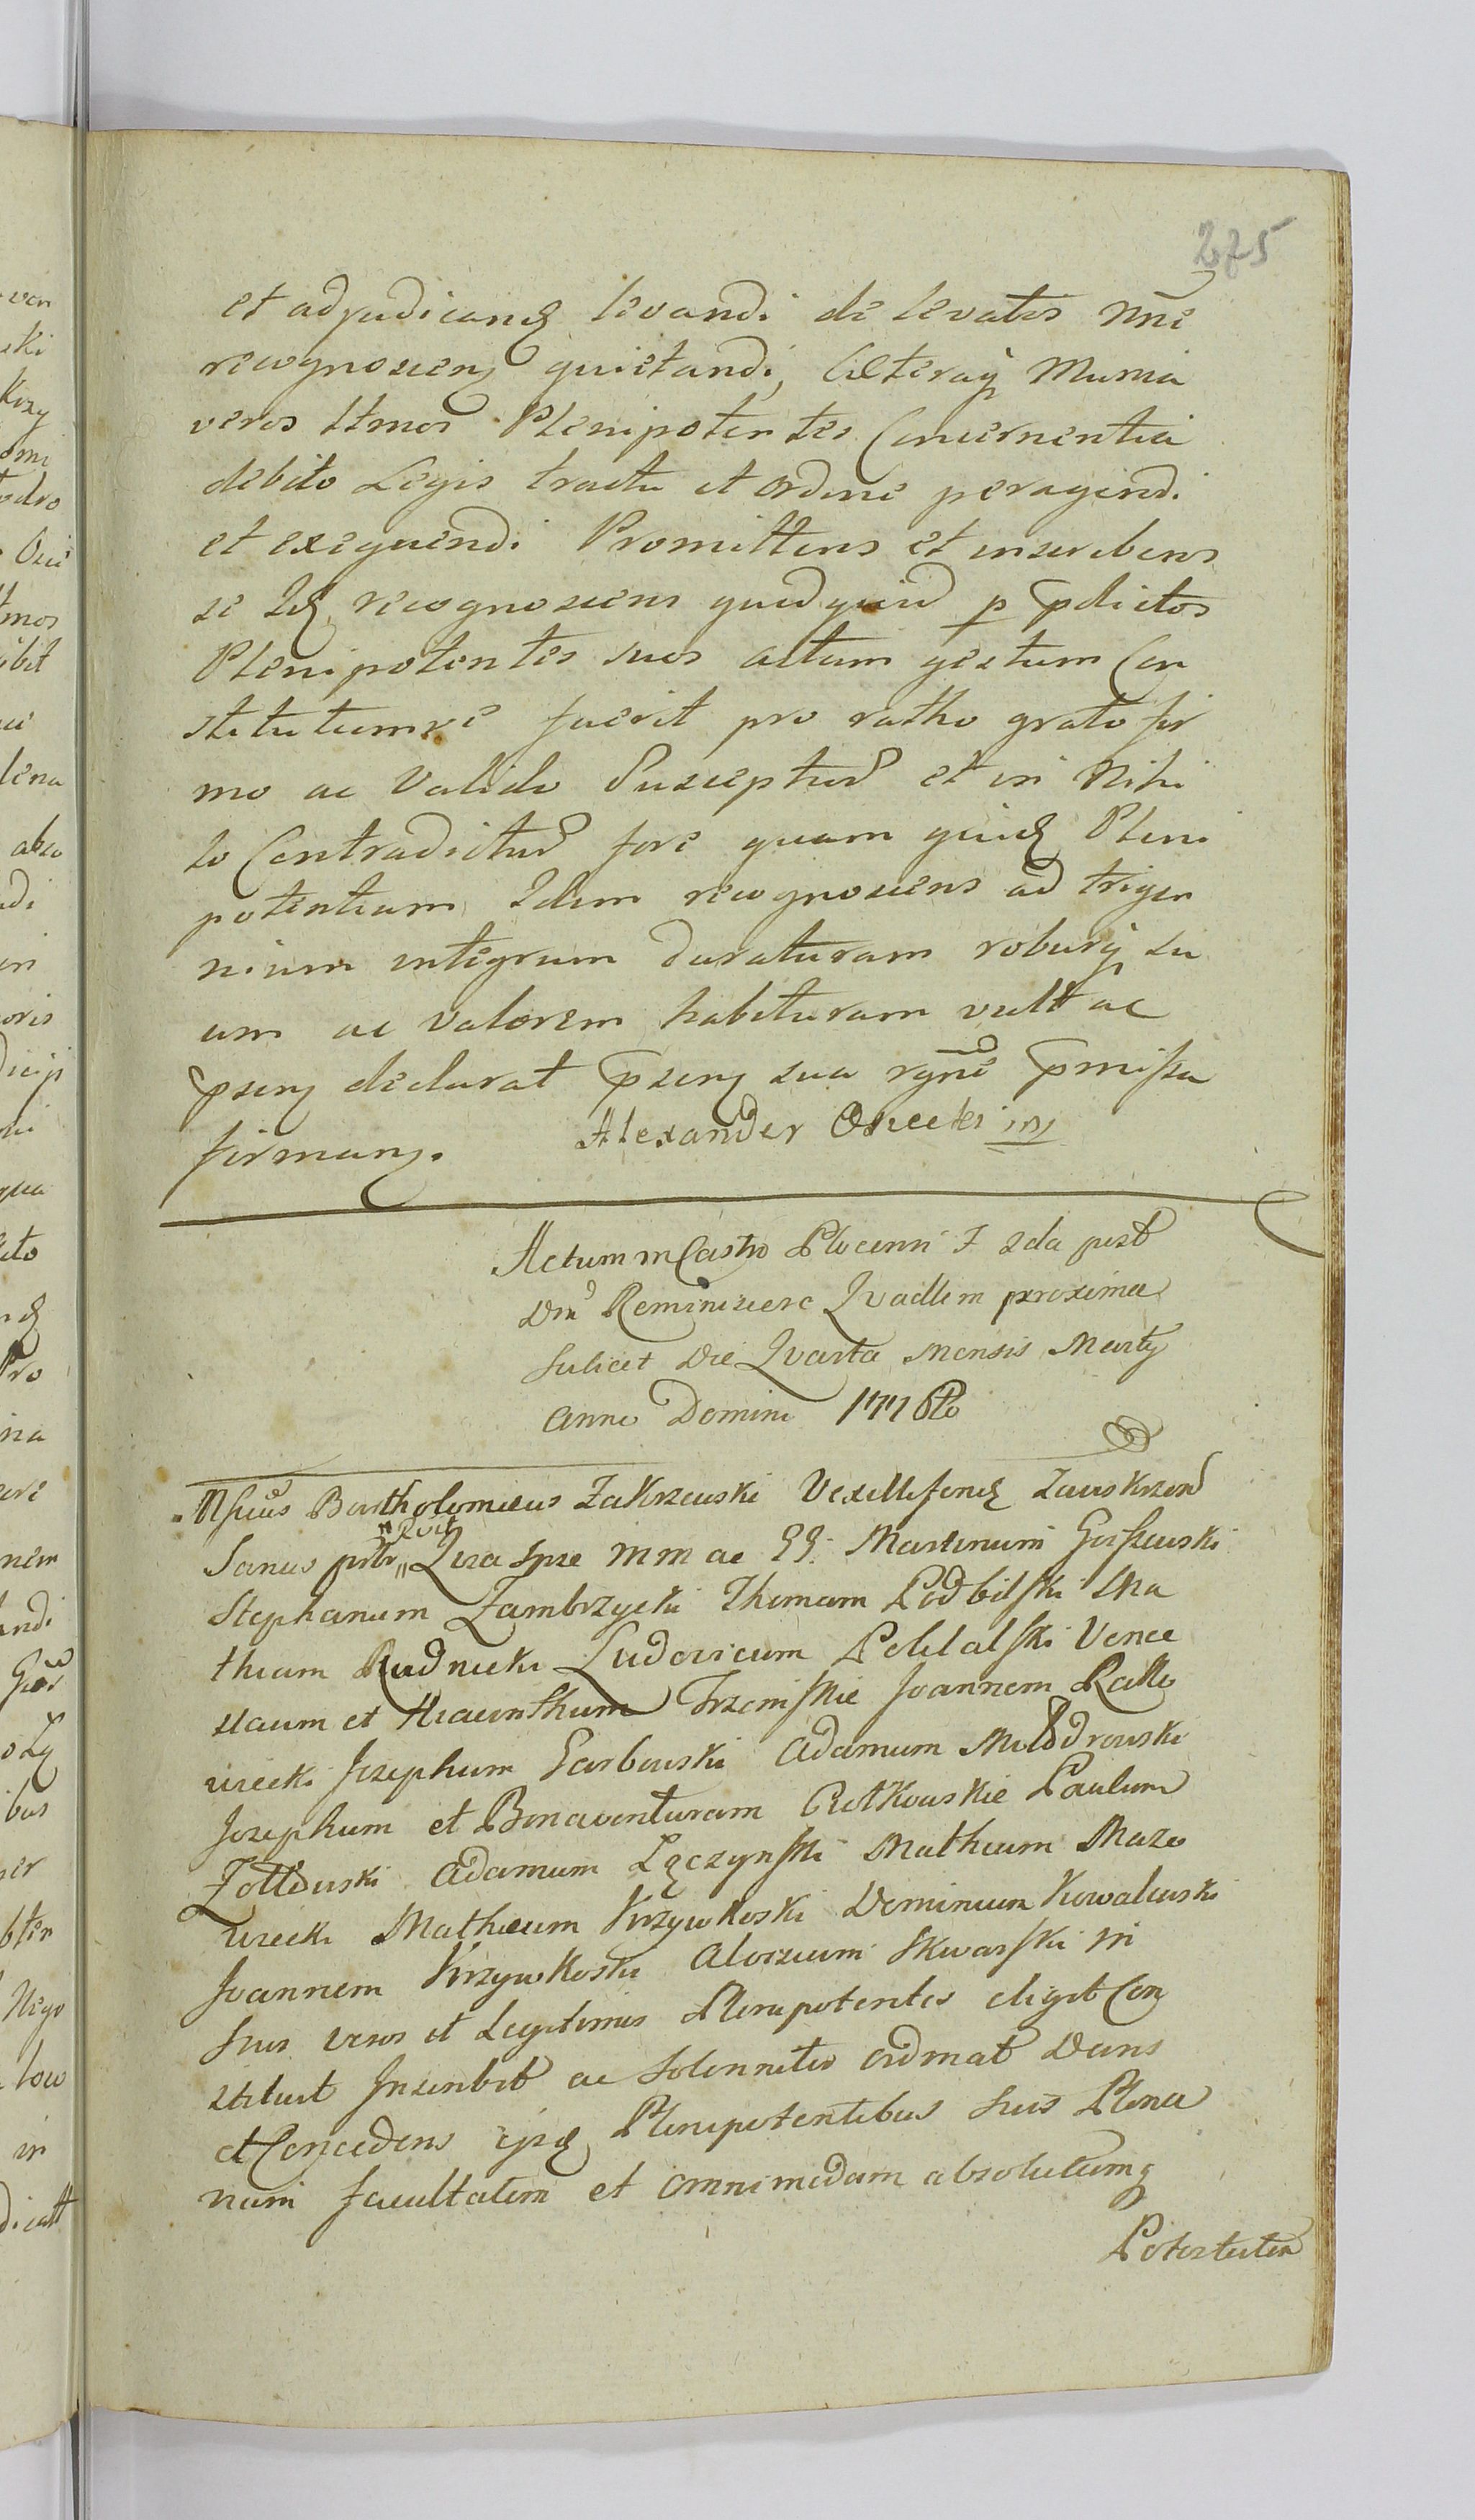 275
et adjudicandȝ levandi de levatis nn̄e
recognoscenȝ quietandi, Cæteraqȝ Munia
veros Ltmos Plenipotentes Concernentia
debito Legis tractu et ordine peragendi
et exequendi Promittens et inscribens
se Idȝ recognoscens quidquid p pdictos
Plenipotentes suos actum gestum Con
stitutumve fuerit pro ratho grato fir
mo ac valido Suscepturꝰ et in Nihi
lo Contradicturꝰ fore quam quidȝ Pleni
potentiam Idem recognoscens ad trigen
nium integrum duraturam roburqȝ su
um ac valorem habituram vult ac
psenȝ declarat psenȝ sua rgn̄e pmissa
firmanȝ. Alexander Osiecki mȝ
Actum in Castro Plocenn F 2da post
Dnꝰ Reminiscere Qvadlem proxima
scilicet Die Qvarta Mensis Martij
Anno Domini 1776to
Mfcus Bartholomeus Zakrzewski Vexillifendȝ Zawskrzen
Sanus Lira spse MM ac GG. Martinum Gosszewski
Stephanum Zambrzycki Thomam Podbilski Ma
thiam Rudnicki Ludovicum Pohlalski Vence
slaum et Hiacinthum Trzcinskie Joannem Rako
wiecki Josephum Garbowski Adamum Młodzowski
Josephum et Bonaventuram Rutkowskie Paulum
Zołtowski Adamum Łączynski Matheum Mazo
wiecki Matheum Krzywkoski Dominicum Kowalewski
Joannem Krzywkoski Aloisium Skwarski in
suos veros et Legitimos Plenipotentes eligit Con
stituit Inscribit ac Solenniter ordinat Dans
et Concedens ijsdȝ Plenipotentibus suis Plena
nam facultatem et omnimodam absolutamqȝ
Potestatem